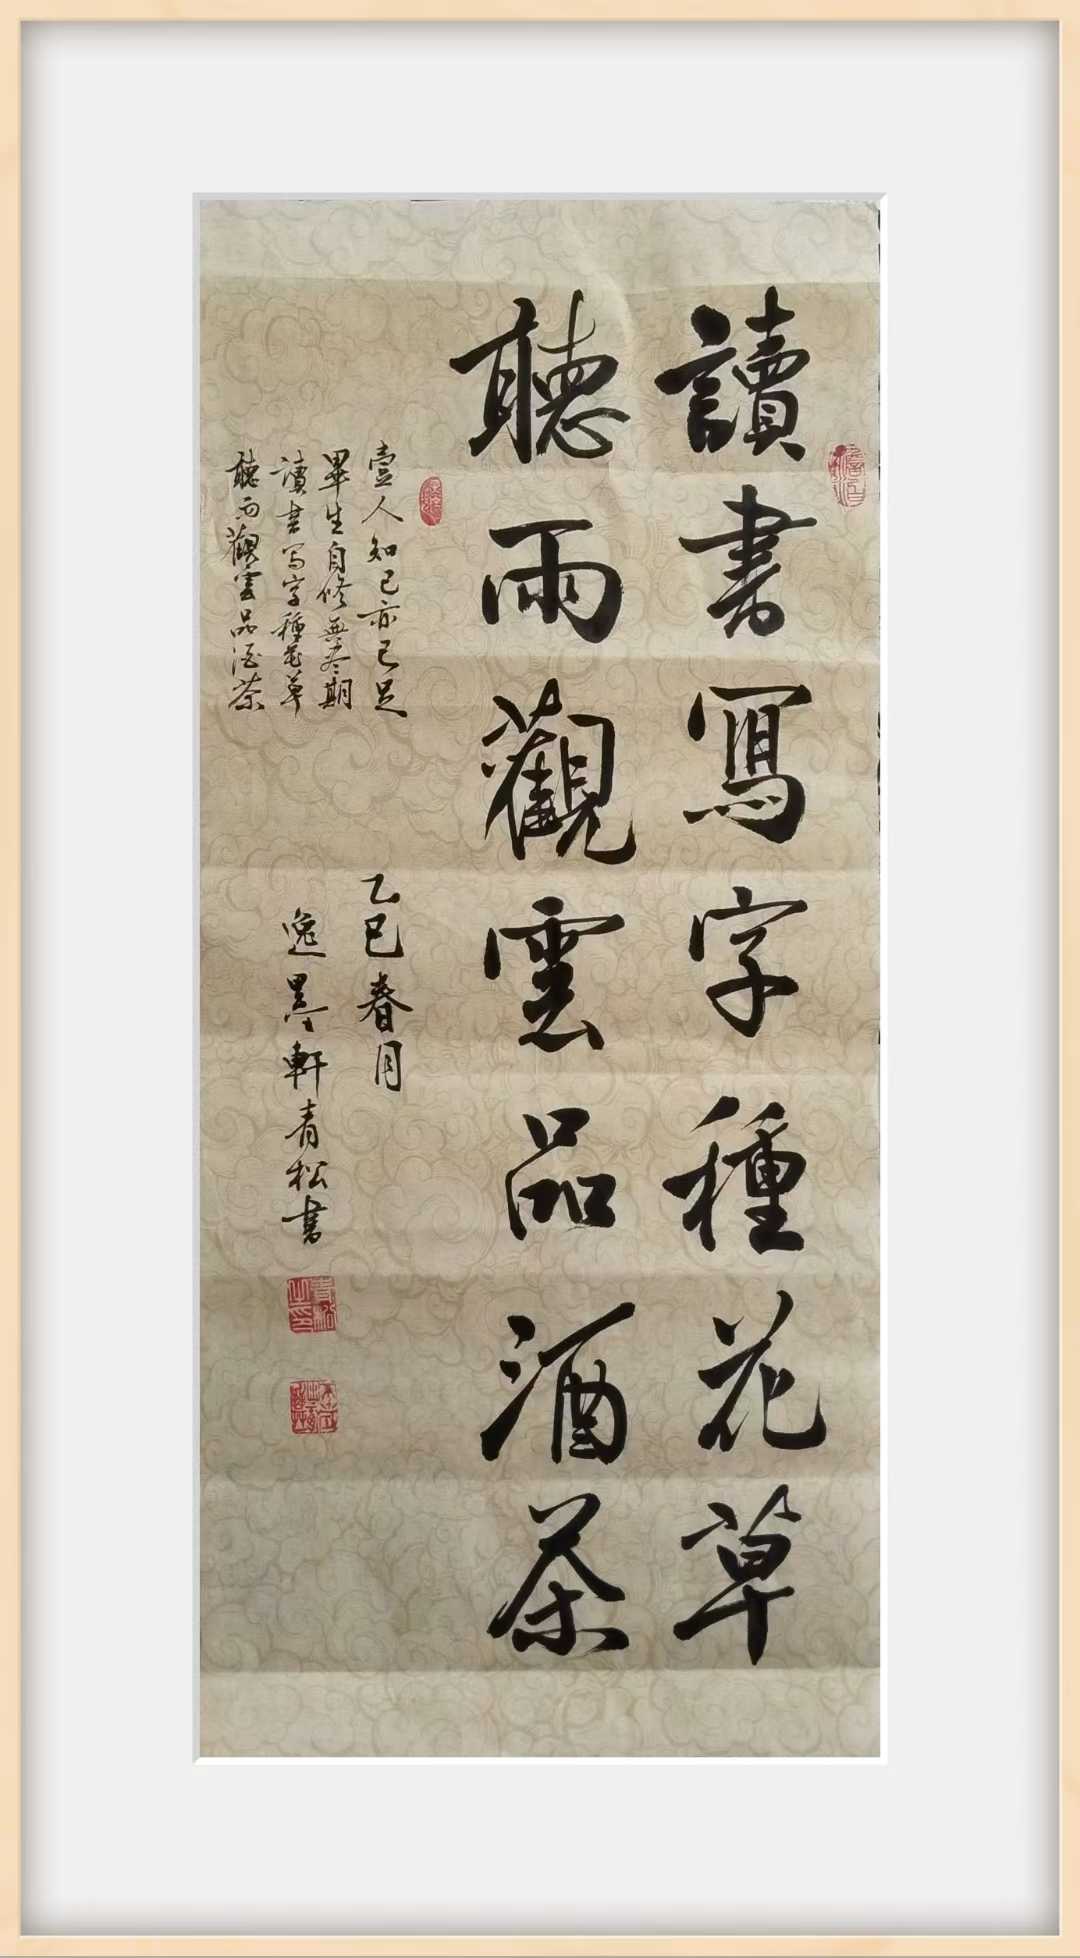 讀書寫字種花草
聽雨觀雲品酒茶
壹人知己亦已足
畢生自修無尽期
读书写字種花草
聽雨觀雲品酒茶
乙巳春月
逸墨軒青松書